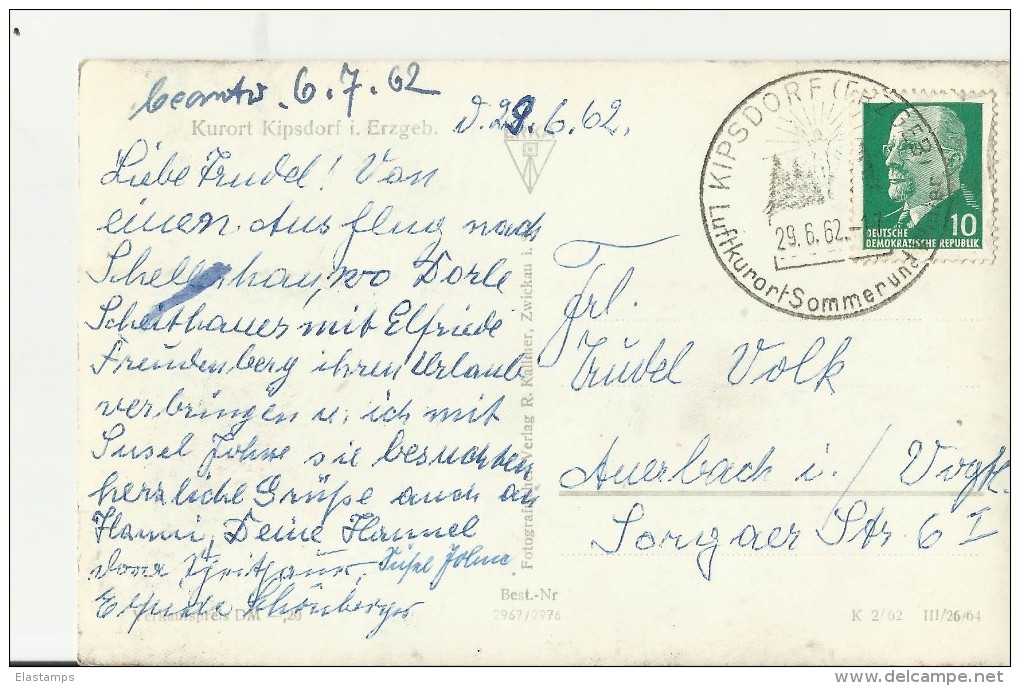 beantw. 6.7.62
d. 29.6.62.
Kurort Kipsdorf i. Erzgeb.
Liebe Trudel! Von
einem Ausflug nach
Schellerhau, wo Dorle
Scheithauer mit Elfriede
Freudenberg ihren Urlaub
verbringen u. ich mit
Susel Johne sie besuchten
herzliche Grüße auch an
Hanni, Deine Hannel
Susel Johne
Verkaufspreis DM —,20
Fotografischer Verlag R. Kallmer, Zwickau i.
Best.-Nr
2967/2976
KIPSDORF (ERZGEB)
29.6.62.-17
Luftkurort Sommer und
DEUTSCHE
DEMOKRATISCHE REPUBLIK
10
Frl.
Trudel Volk
Auerbach i./Vogtl.
Sorgaer Str. 6 I
K 2/62 III/26/64
Elastamps
delcampe.net